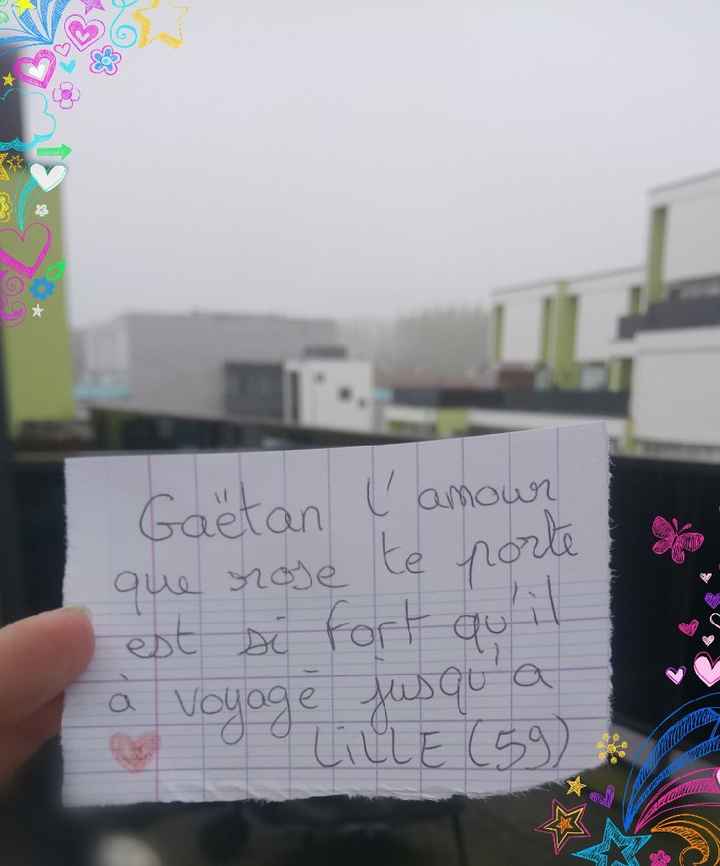 Gaëtan l'amour
que rose te porte
est si fort qu'il
à voyagé jusqu'a
LiLLE (59)